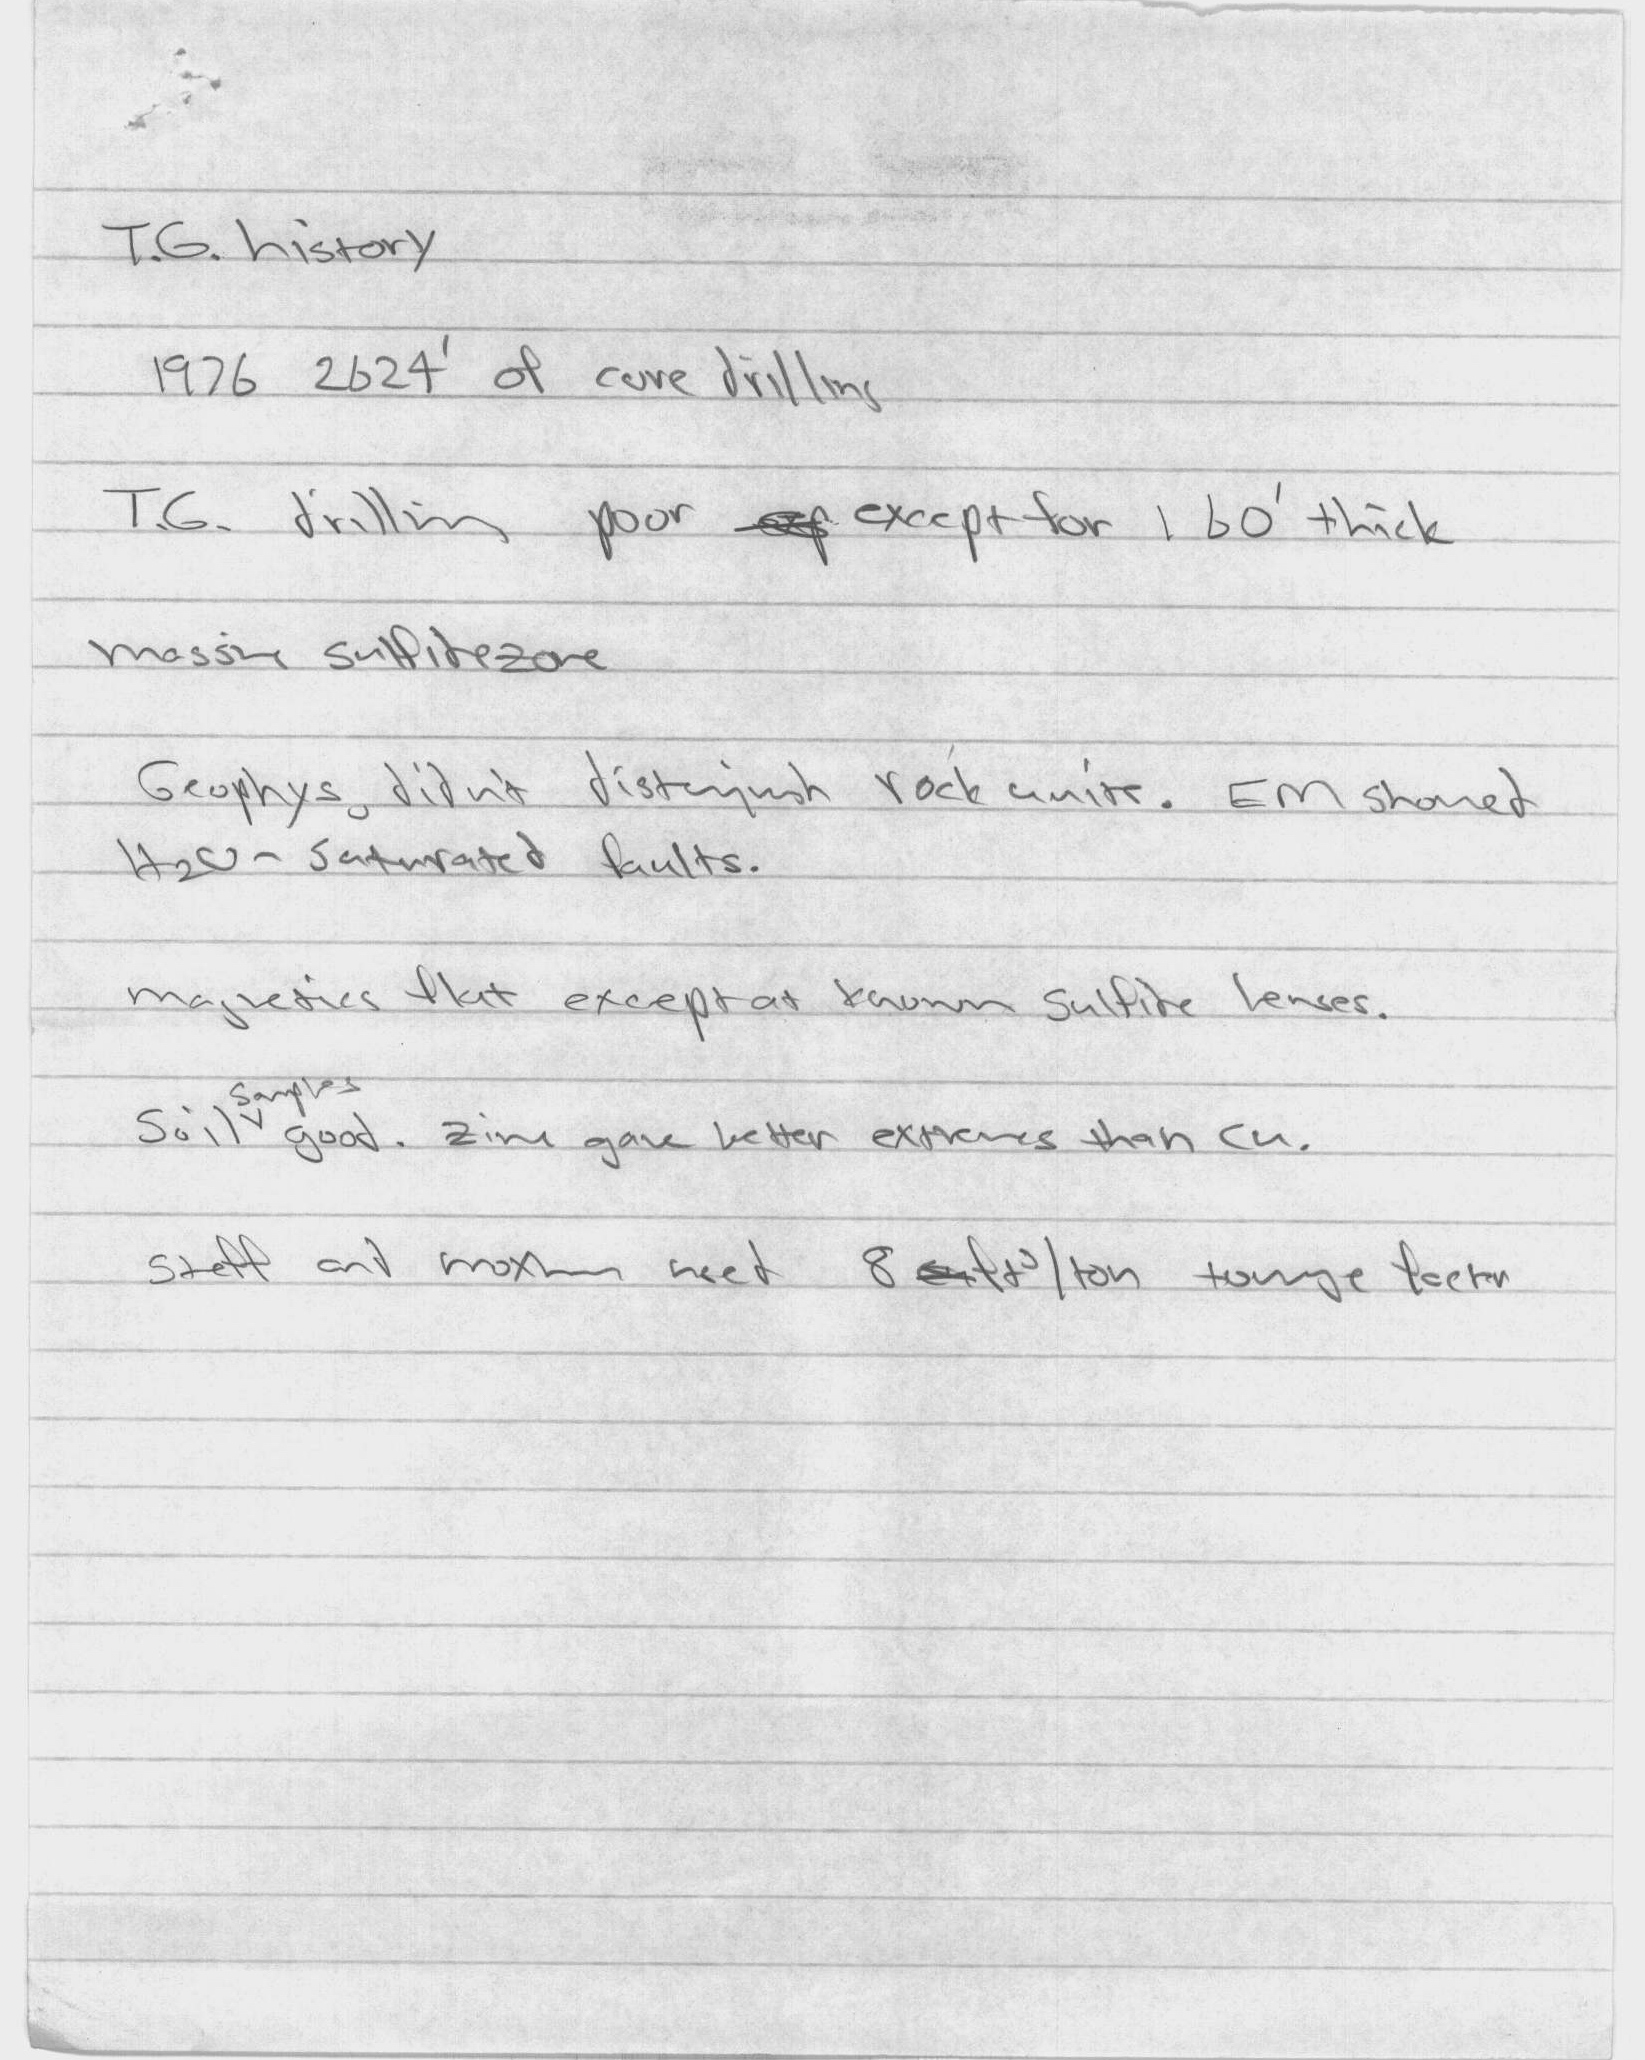 T.G. history
1976 2624' of core drilling
T.G. drilling poor except for 1 60' thick
massive sulfide zone
Geophys. didn't distinguish rock units. EM showed
H2O - saturated faults.
magnetics flat except at known sulfide lenses.
Soil samples good. Zinc gave better extremes than Cu.
Steff and used 8 ft³/ton tonnage factor